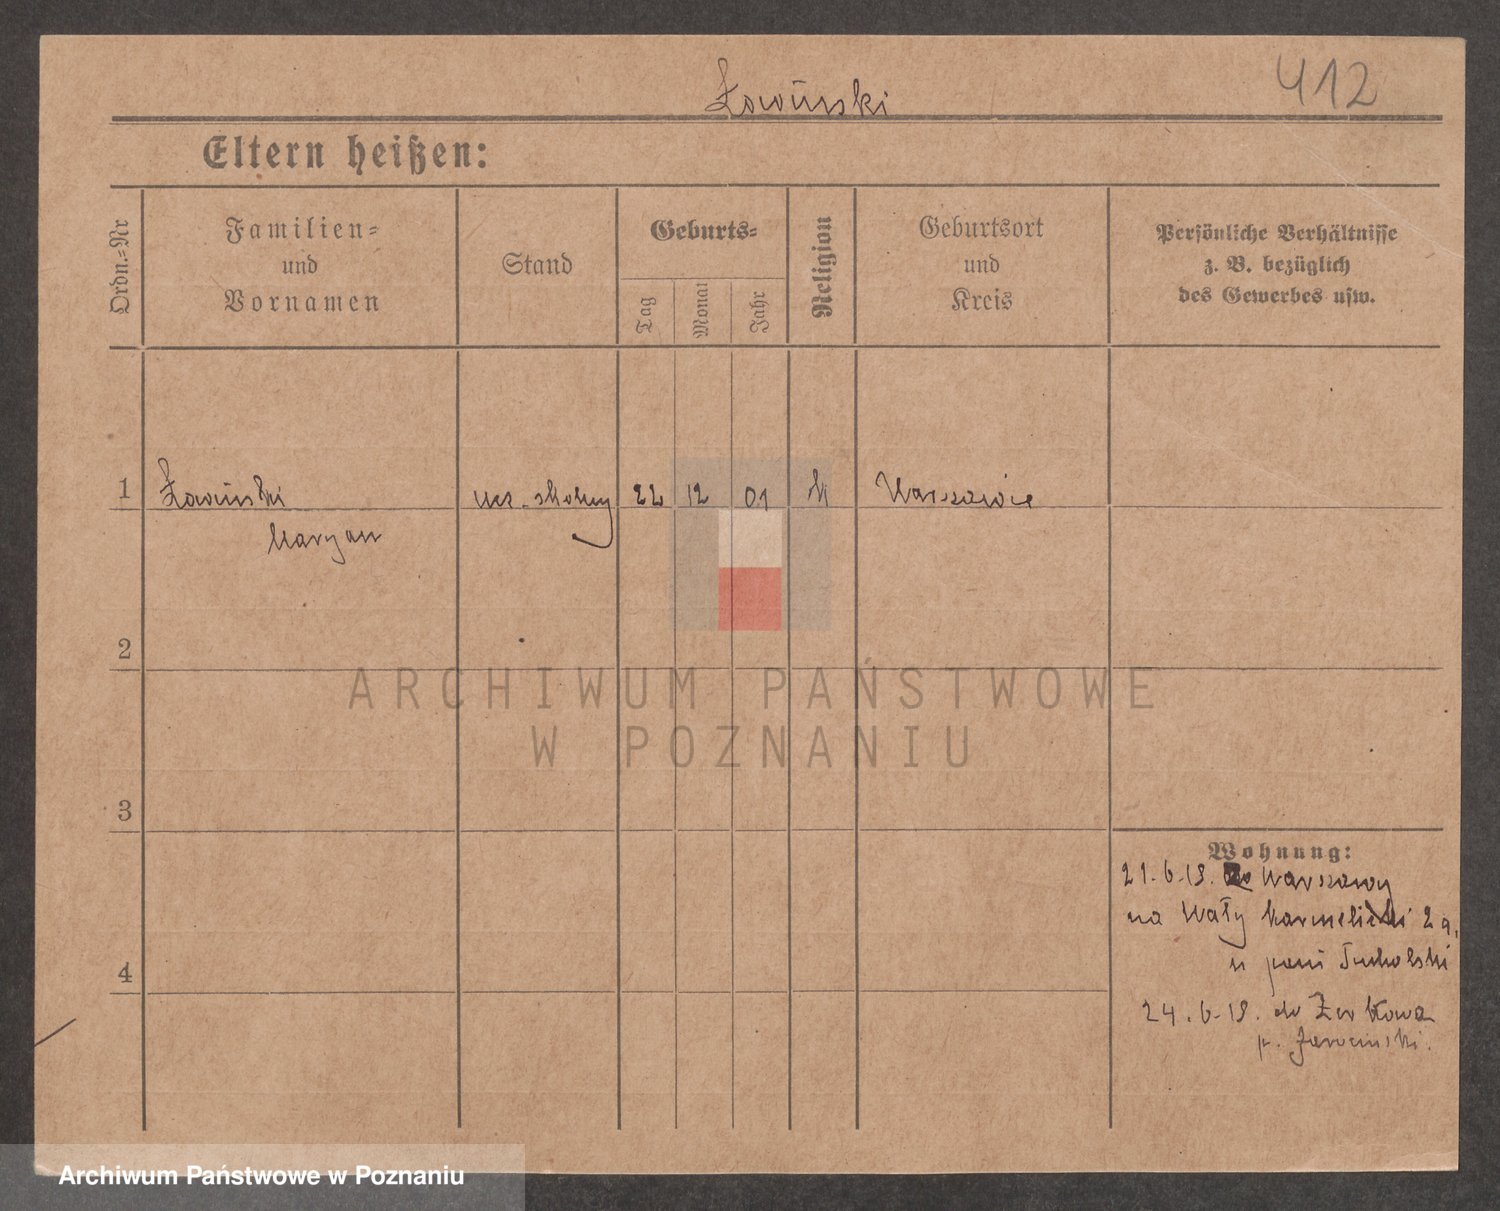 412
Ławiński
Eltern heißen:
Ordn.-Nr
Familien-
und
Vornamen
Stand
Geburts-
Tag
Monat
Jahr
Religion
Geburtsort
und
Kreis
Persönliche Verhältnisse
z. B. bezüglich
des Gewerbes usw.
1 Ławiński ucz. szkolny 22 12 01 k Warszawie
Maryan
2
3
4
Wohnung:
21.6.19. do Warszawy
na Wały Karmelicki 2a,
u pani Tucholski
24.6.19. do Żerkowa
p. Jarociński.
ARCHIWUM PAŃSTWOWE
W POZNANIU
Archiwum Państwowe w Poznaniu